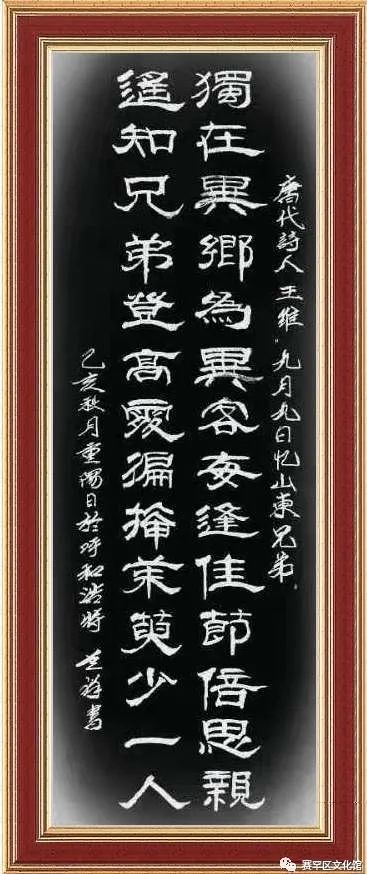 唐代詩人王維"九月九日忆山東兄弟。
獨在異鄉為異客每逢佳節倍思親
遙知兄弟登高處徧插茱萸少一人
己亥秋月重陽日於呼和浩特 祥書
赛罕区文化馆